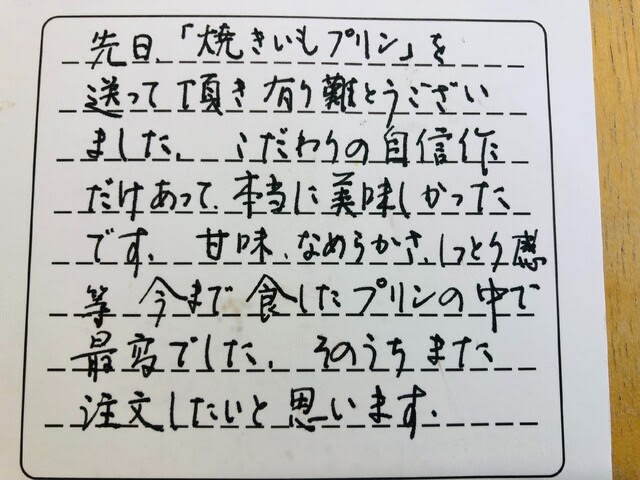 先日、「焼きいもプリン」を
送って頂き有り難とうござい
ました。 こだわりの自信作
だけあって、本当に美味しかった
です。 甘味、なめらかさ、しっとり感
等 今まで食したプリンの中で
最変でした。 そのうちまた
注文したいと思います。